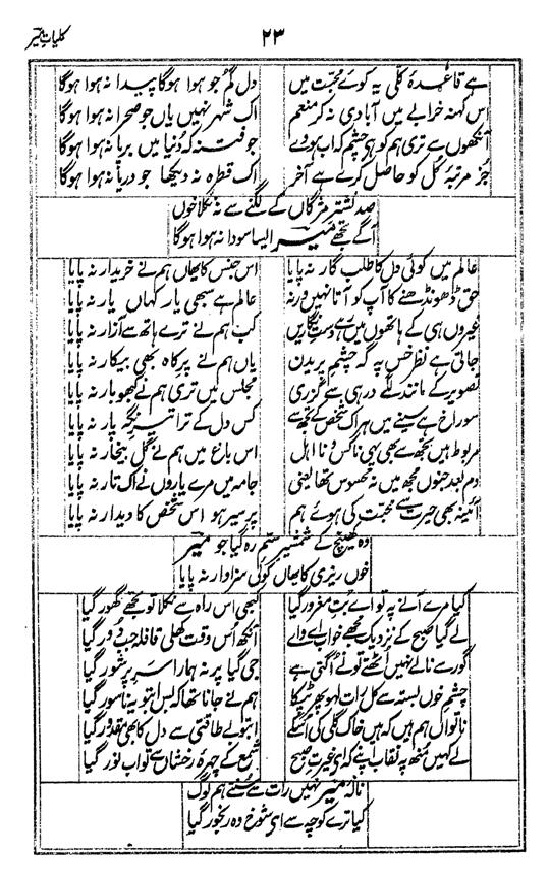 کلیات میر
۲۳
ہے قاعدۂ کلی یہ کوئے محبت میں دل گم جو ہوا ہوگا پیدا نہ ہوا ہوگا
اس کہنہ خرابے میں آبادی نہ کر منعم اک شہر نہیں یاں جو صحرا نہ ہوا ہوگا
آنکھوں سے تری ہم کو ہے چشم کہ اب ہووے جو فتنہ کہ دنیا میں برپا نہ ہوا ہوگا
جز مرتبۂ کل کو حاصل کرے ہے آخر اک قطرہ نہ دیکھا جو دریا نہ ہوا ہوگا
صد نشتر مژگاں کے لگنے سے نہ نکلا خوں
آگے تجھے میر ایسا سودا نہ ہوا ہوگا
عالم میں کوئی دل کا طلب گار نہ پایا اس جنس کا یھاں ہم نے خریدار نہ پایا
حق ڈھونڈھنے کا آپ کو آتا نہیں ورنہ عالم ہے سبھی یار کہاں یار نہ پایا
غیروں ہی کے ہاتھوں میں رہے دست نگاریں کب ہم نے ترے ہاتھ سے آزار نہ پایا
جاتی ہے نظر خس پہ گہ چشم پریدن یاں ہم نے پر کاہ بھی بیکار نہ پایا
تصویر کے مانند لگے در ہی سے گزری مجلس میں تری ہم نے کبھو بار نہ پایا
سوراخ ہے سینے میں ہر اک شخص کے تجھ سے کس دل کے ترا تیر نگہ پار نہ پایا
مربوط ہیں تجھ سے بھی یہی ناکس و نا اہل اس باغ میں ہم نے گل بیخار نہ پایا
دم بعد جنوں مجھ میں نہ محسوس تھا یعنی جامہ میں مرے یاروں نے اک تار نہ پایا
آئینہ بھی حیرت سے محبت کی ہوئے ہم پر سیر ہو اس شخص کا دیدار نہ پایا
وہ کھینچ کے شمشیر ستم رہ گیا جو میر
خوں ریزی کا یھاں کوئی سزاوار نہ پایا
کیا مرے آنے پہ تو اے بت مغرور گیا کبھی اس راہ سے نکلا تو تجھے گھور گیا
لے گیا صبح کے نزدیک مجھے خواب اے وائے آنکھ اس وقت کھلی قافلہ جب دور گیا
گور سے نالے نہیں اٹھتے تو نے اگتی ہے جی گیا پر نہ ہمارا سر پر شور گیا
چشم خوں بستہ سے کل رات لہو پھر ٹپکا ہم نے جانا تھا کہ بس اب تو یہ ناسور گیا
ناتواں ہم ہیں کہ ہیں خاک گلی کی اس کے اب تو بے طاقتی سے دل کا بھی مقدور گیا
لے کہیں منھ پہ نقاب اپنے کہ اے غیرت صبح شمع کے چہرۂ رخشاں سے تو اب نور گیا
نالۂ میر نہیں رات سے سنتے ہم لوگ
کیا ترے کوچہ سے اے شوخ وہ رنجور گیا